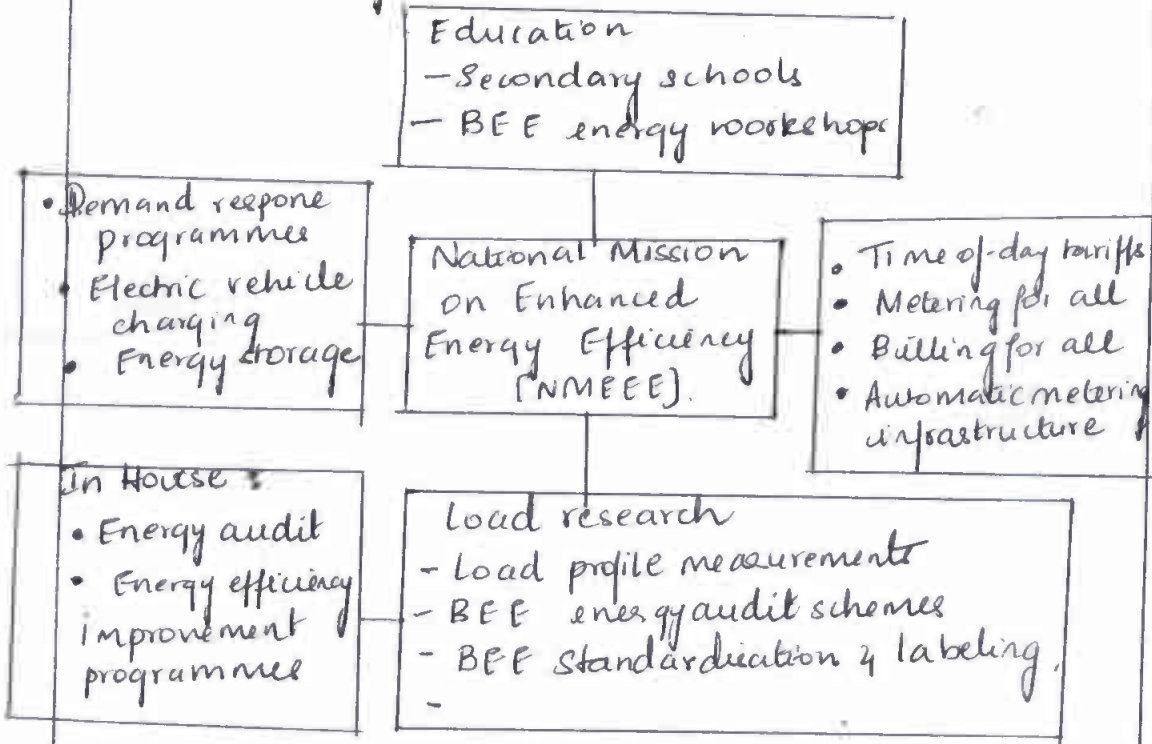 Education
- Secondary schools
- BEE energy workshops
• Demand respone
programmes
• Electric vehicle
charging
• Energy storage
National Mission
on Enhanced
Energy Efficiency
[NMEEE].
• Time of-day tariffs
• Metering for all
• Billing for all
• Automatic metering
infrastructure
In House :
• Energy audit
• Energy efficiency
improvement
programmes
Load research
- Load profile measurements
- BEE energy audit schemes
- BEE Standardization & labeling.
-